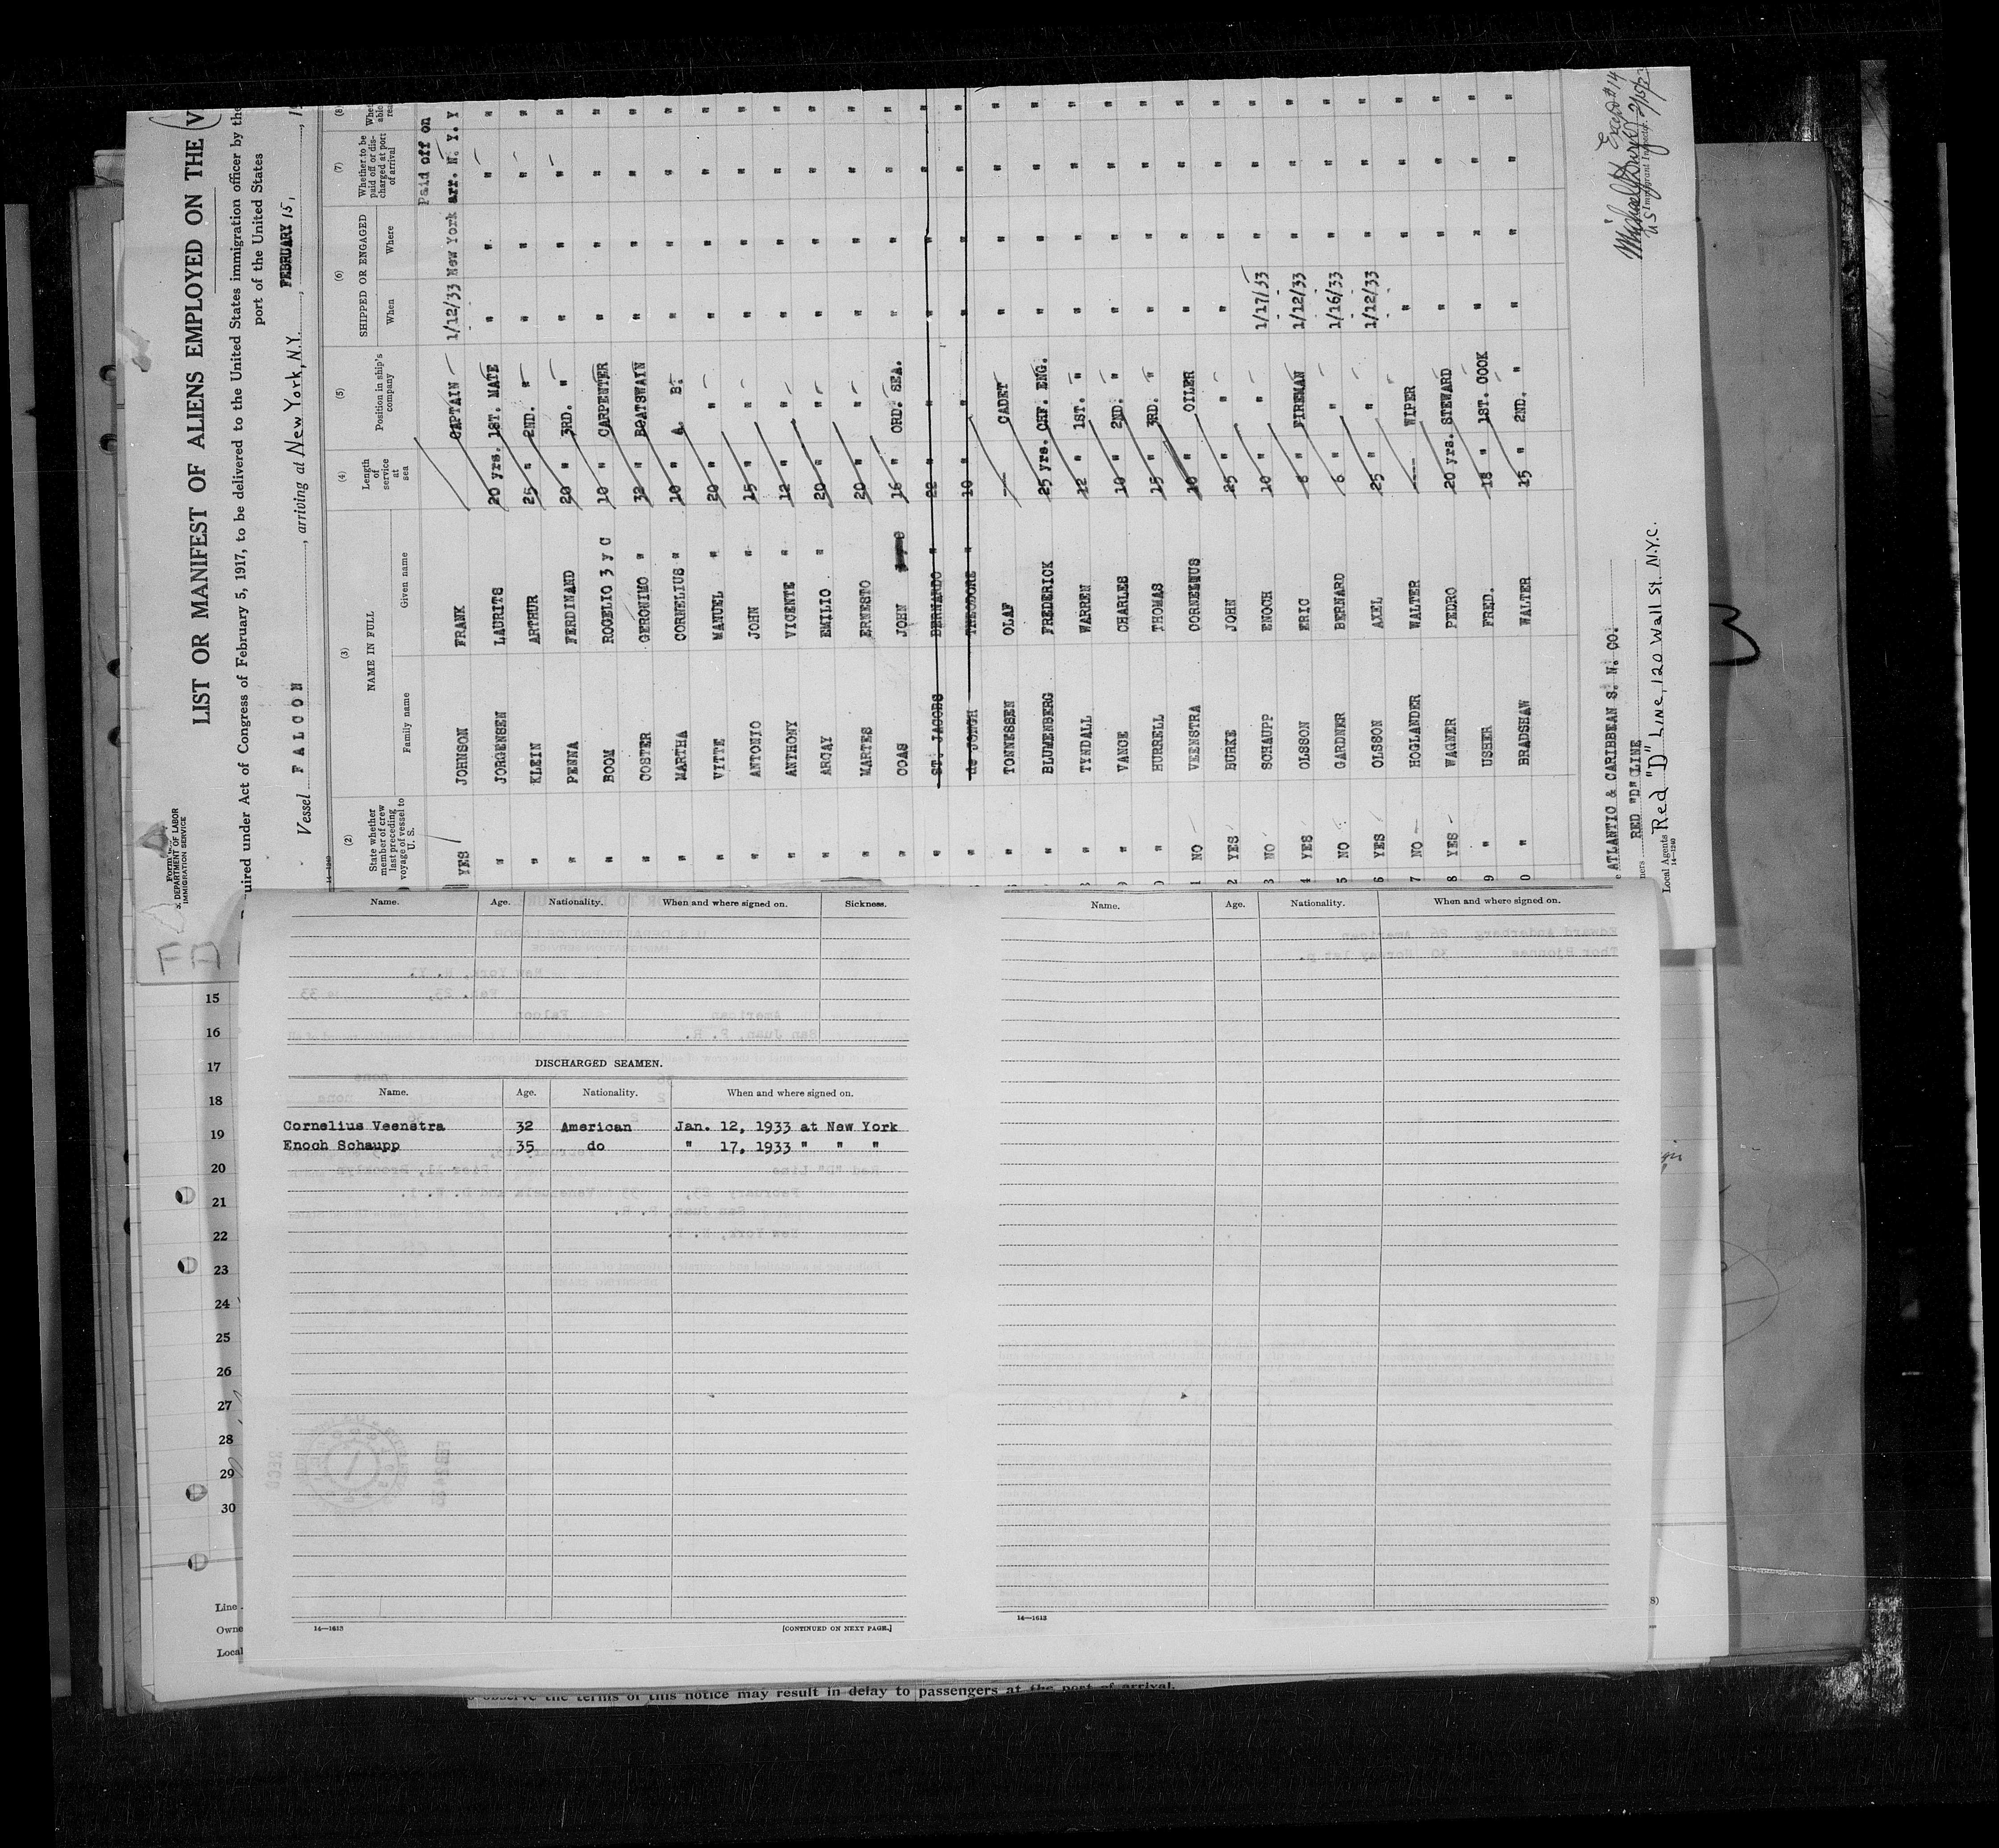 LIST OR MANIFEST OF ALIENS EMPLOYED ON THE
S. DEPARTMENT OF LABOR
IMMIGRATION SERVICE
uired under Act of Congress of February 5, 1917, to be delivered to the United States immigration officer by the
port of the United States
Vessel FALCON, arriving at New York, N.Y., FEBRUARY 15,
(2) (3) (4) (5) (6) (7) (8)
State whether member of crew last preceding voyage of vessel to U. S. NAME IN FULL Length of service at sea Position in ship's company SHIPPED OR ENGAGED Whether to be paid off or discharged at port of arrival
Family name Given name When Where
Paid off on
YES JOHNSON FRANK CAPTAIN 1/12/33 New York arr. N. Y. Y
" JORGENSEN LAURITS 20 yrs. 1ST. MATE " " " "
" KLEIN ARTHUR 25 " 2ND. " " " " "
" PENNA FERDINAND 20 " 3RD. " " " " "
" BOOM ROGELIO 3 y C 10 " CARPENTER " " " "
" COSTER GERONIMO " 32 " BOATSWAIN " " " "
" MARTHA CORNELIUS " 10 " A. B. " " " "
" VITTE MANUEL " 20 " " " " " "
" ANTONIO JOHN " 15 " " " " " "
" ANTHONY VICENTE " 12 " " " " " "
" ARCAY EMILIO " 20 " " " " " "
" MARTES ERNESTO 20 " " " " " "
" COAS JOHN 16 " ORD. SEA. " " " "
" ST. JACOBS BERNARDO " 22 " " " " " "
" de JONGH THEODORE " 10 " " " " " "
" TONNESSEN OLAF --- CADET " " " "
" BLUMENBERG FREDERICK 25 yrs. CHF. ENG. " " " "
" TYNDALL WARREN 12 " 1ST. " " " " "
" VANCE CHARLES 10 " 2ND. " " " " "
" HURRELL THOMAS 15 " 3RD. " " " " "
NO VEENSTRA CORNELIUS 10 " OILER " " " "
YES BURKE JOHN 25 " " " " " "
NO SCHAUPP ENOCH 10 " " 1/17/33 " " "
YES OLSSON ERIC 6 " FIREMAN 1/12/33 " " "
NO GARDNER BERNARD 6 " " 1/16/33 " " "
YES OLSSON AXEL 25 " " 1/12/33 " " "
NO HOGLANDER WALTER --- WIPER " " " "
YES WAGNER PEDRO 20 yrs. STEWARD " " " "
" USHER FRED. 18 " 1ST. COOK " " " "
" BRADSHAW WALTER 15 " 2ND. " " " " "
ATLANTIC & CARIBBEAN S. N. CO.
ners RED "D" LINE
Local Agents Red "D" Line, 120 Wall St. N.Y.C.
14—1240
Except #14
US Immigrant Inspector.
Name. Age. Nationality. When and where signed on. Sickness.
DISCHARGED SEAMEN.
Name. Age. Nationality. When and where signed on.
Cornelius Veenstra 32 American Jan. 12, 1933 at New York
Enoch Schaupp 35 do " 17, 1933 " " "
14—1613
[CONTINUED ON NEXT PAGE.]
Name. Age. Nationality. When and where signed on.
14—1613
FA
15
16
17
18
19
20
21
22
23
24
25
26
27
28
29
30
Line
Owne
Local
observe the terms of this notice may result in delay to passengers at the port of arrival.